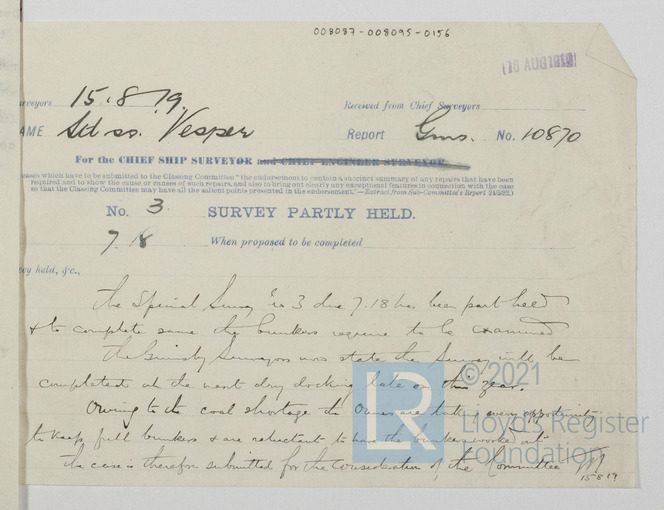 008087-008095-0156
18 AUG 1919
rveyors 15.8.19. Received from Chief Surveyors
AME Stl ss. Vesper Report Gms. No. 10870
For the CHIEF SHIP SURVEYOR and CHIEF ENGINEER SURVEYOR.
ases which have to be submitted to the Classing Committee, "the endorsement to contain a succinct summary of any repairs that have been
required and to show the cause or causes of such repairs, and also to bring out clearly any exceptional features in connection with the case
so that the Classing Committee may have all the salient points presented in the endorsement."—Extract from Sub-Committee's Report
No. 3. SURVEY PARTLY HELD.
7.18 When proposed to be completed
vey held, &c.,
The Special Survey No 3 due 7.18 has been part held
& to complete same the bunkers require to be examined
The Grimsby Surveyors now state the Survey will be
completed at the next dry docking late on this year.
Owing to the coal shortage the Owners are taking every opportunity
to keep full bunkers & are reluctant to have the bunkers worked out
The case is therefore submitted for the consideration of the Committee
15.8.19
LR
© 2021
Lloyd's Register
Foundation